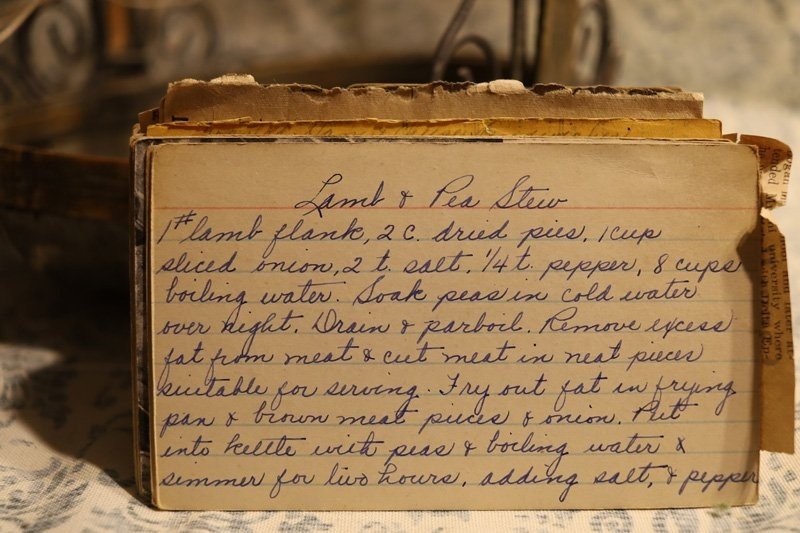 Lamb & Pea Stew
1# lamb flank, 2 c. dried pies, 1 cup
sliced onion, 2 t. salt, 1/4 t. pepper, 8 cups
boiling water. Soak peas in cold water
over night. Drain & parboil. Remove excess
fat from meat & cut meat in neat pieces
suitable for serving. Fry out fat in frying
pan & brown meat pieces & onion. Put
into kettle with peas & boiling water &
simmer for two hours, adding salt, & pepper
university where